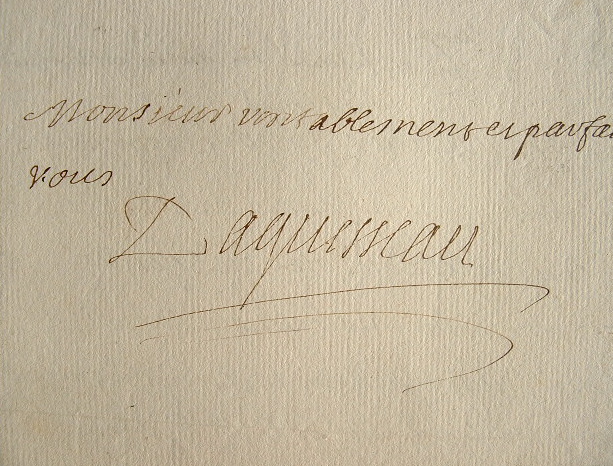 Monsieur veritablement et parfa
vous
Daguesseau